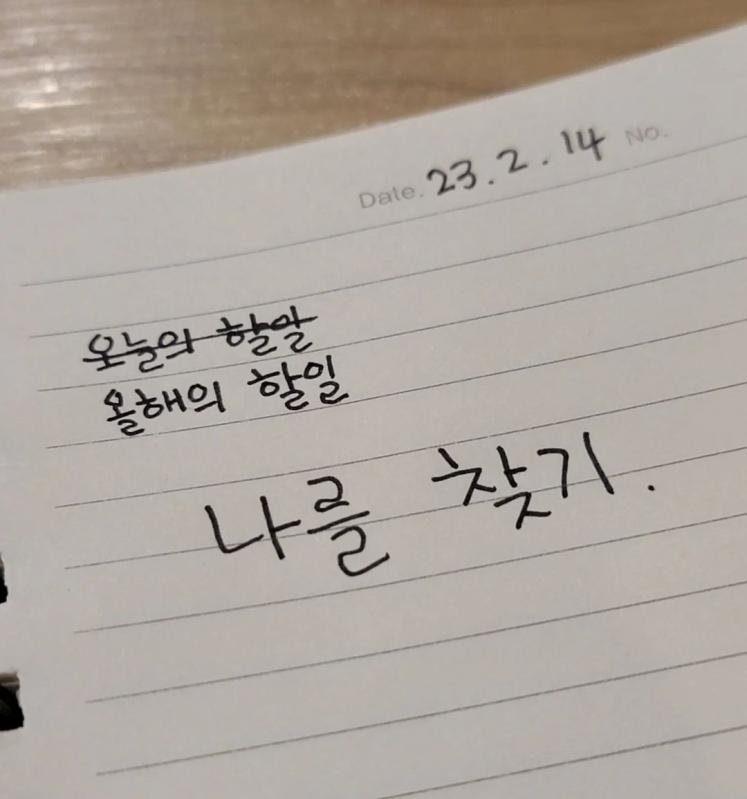 Date. 23.2.14 No.
오늘의 할일
올해의 할일
나를 찾기.